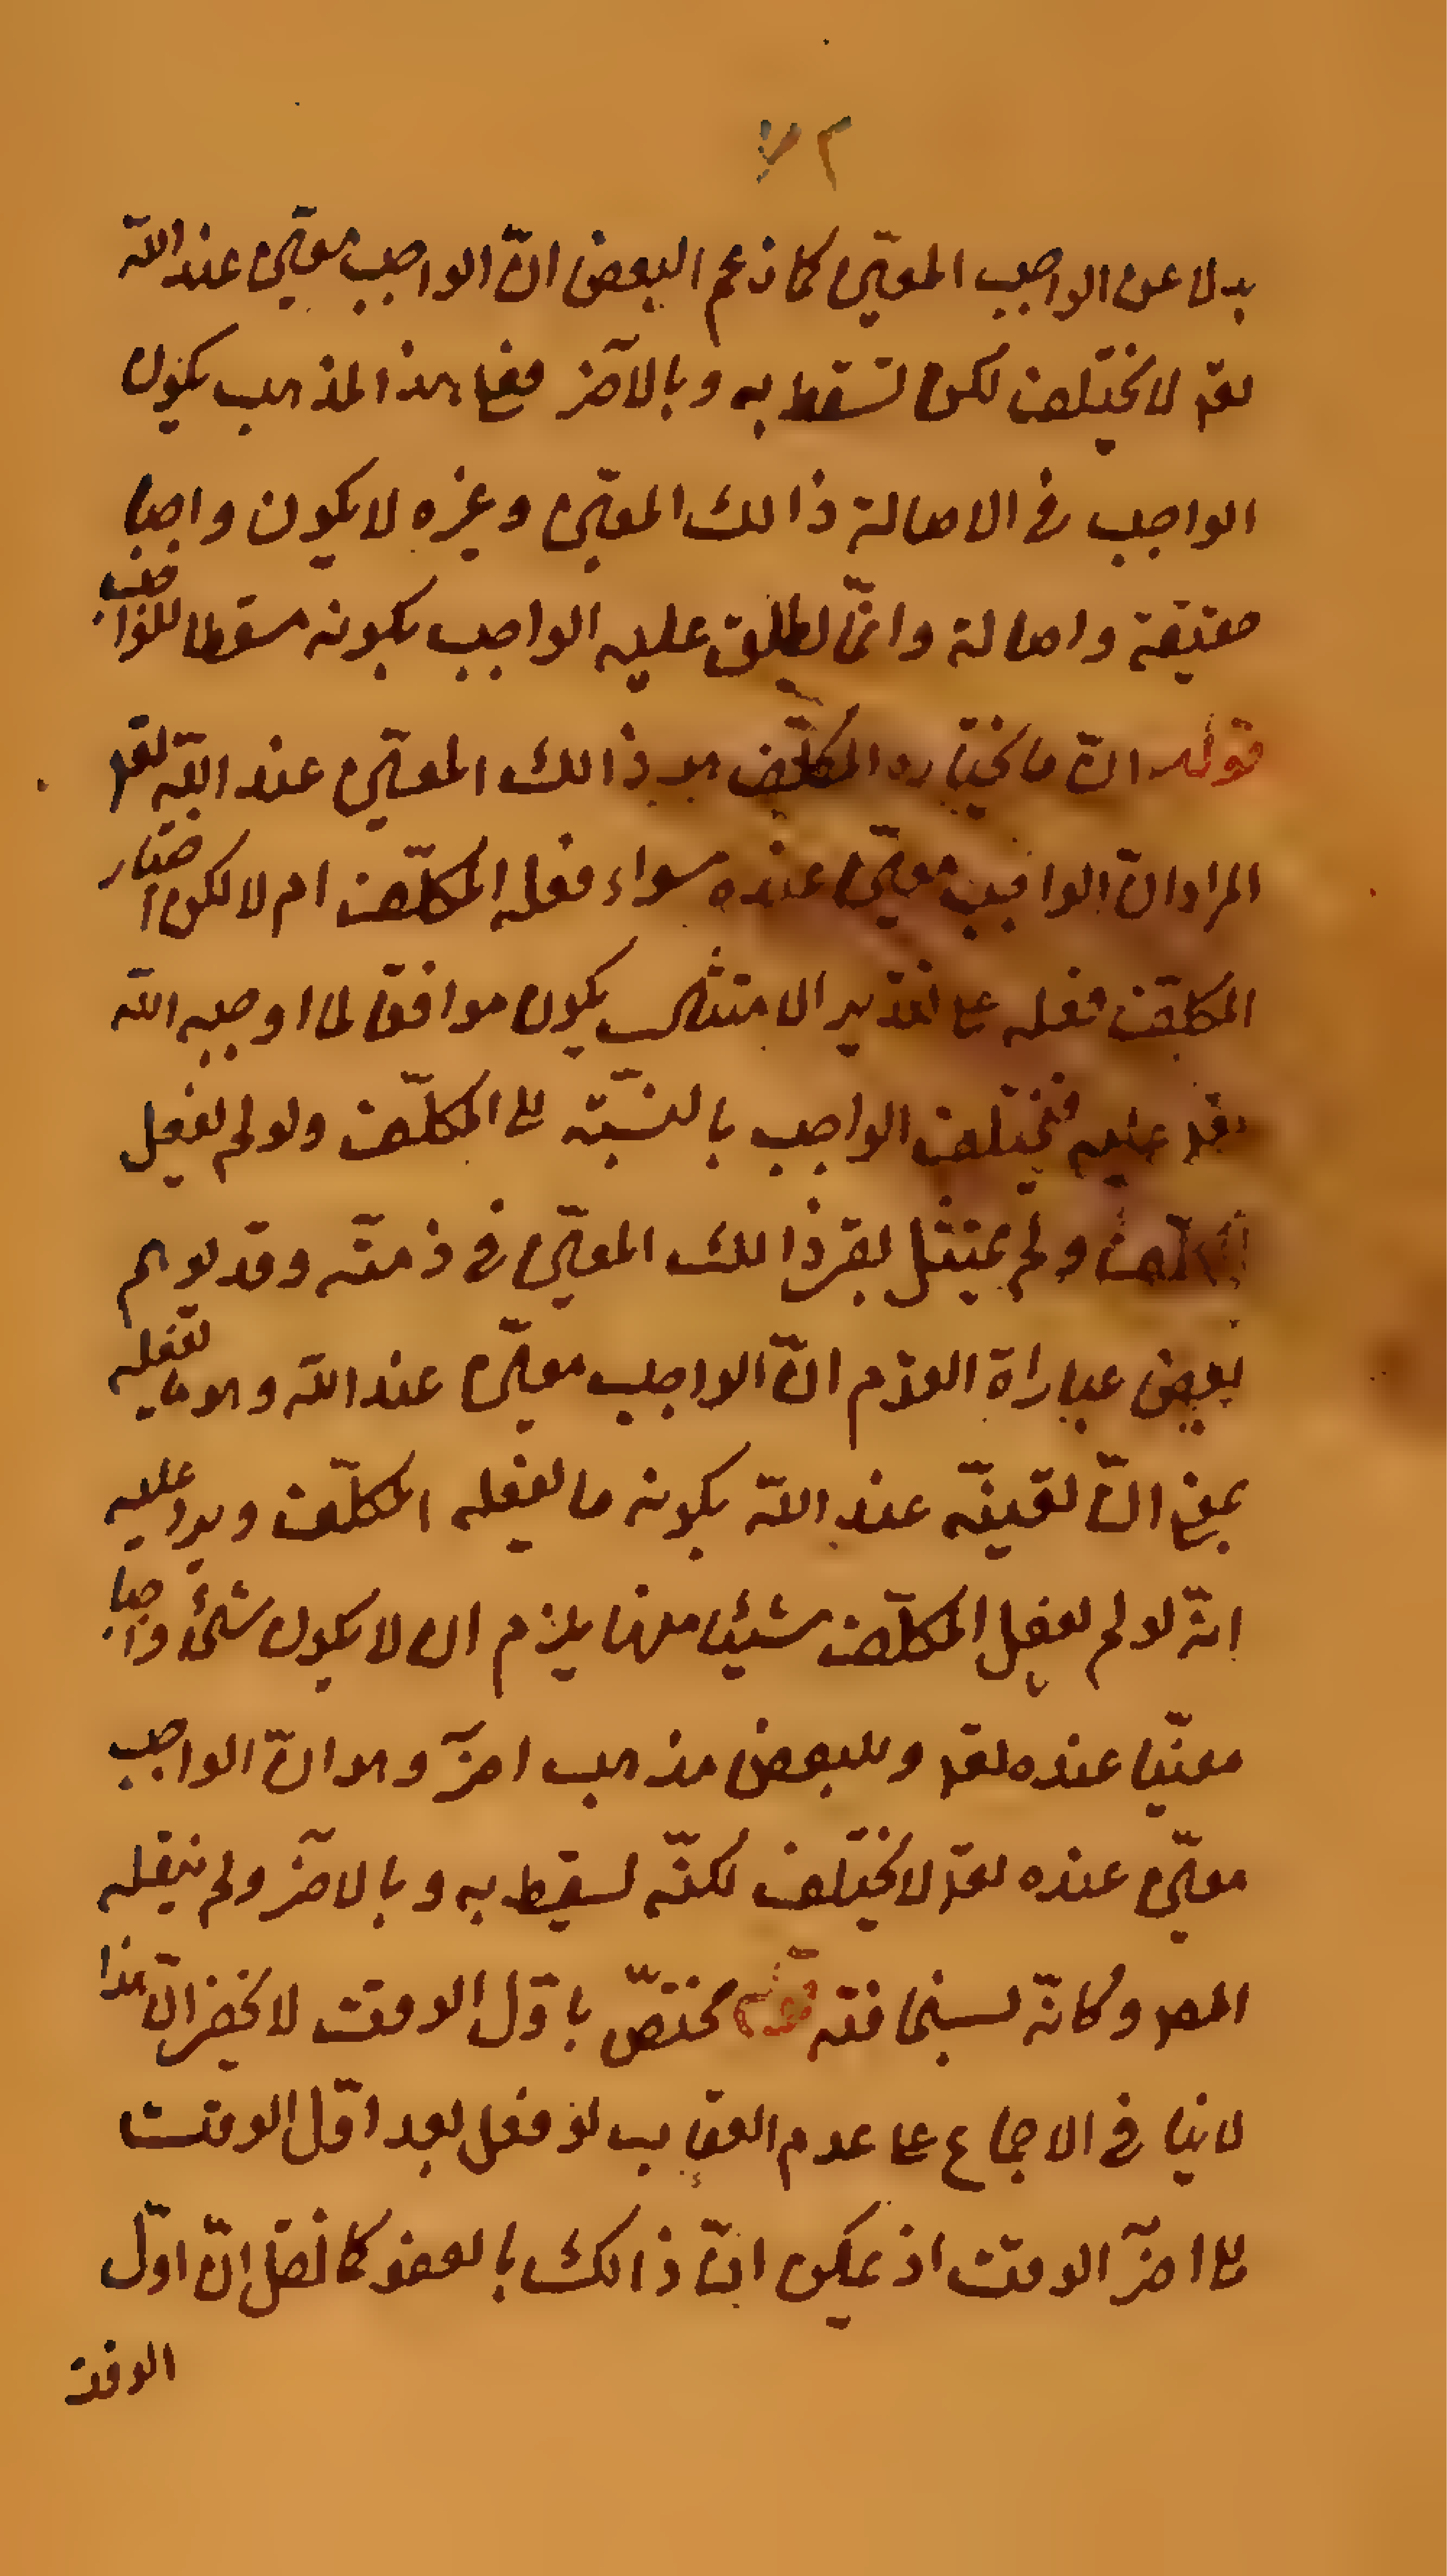 بدلا عن الواجب المعيّن كما زعم البعض انّ الواجب معيّن عند اللّه
تعم لا يختلف لكن تسقط به وبالآخر فعلى هذ المذهب يكون
الواجب فى الاصالة ذالك المعيّن وغيره لا يكون واجبا
حقيقة واصالة وانّما يطلق عليه الواجب بكونه مسقطا للواجب
قوله انّ ما يختاره المكلّف هو ذالك المعيّن عند اللّه تعم
المراد انّ الواجب معيّن عنده سواء فعله المكلّف ام لا لكن اختيار
المكلّف فعله على تقدير الامتثال يكون موافقا لما اوجبه اللّه
تعم عليه فيختلف الواجب بالنّسبة الى المكلّف ولو لم يفعل
المكلّف ولم يمتثل بقى ذالك المعيّن فى ذمّته وقد يوهم
بعض عباراة القوم انّ الواجب معيّن عند اللّه وهو ما يفعله
بمعنى انّ تعيينه عند اللّه بكونه ما يفعله المكلّف ويرد عليه
انّه لو لم يفعل المكلّف شيئا منها يلزم ان لا يكون شئ واجبا
معيّنا عنده تعم وللبعض مذهب اخر وهو انّ الواجب
معيّن عنده تعم لا يختلف لكنّه يسقط به وبالآخر ولم ينقله
المص وكانّه لسخافته قوله يختصّ باوّل الوقت لا يخفى انّ هذا
لا ينافى الاجماع على عدم العقاب لو فعل بعد اوّل الوقت
الى اخر الوقت اذ يمكن انّ ذالك بالعفو كما نقل انّ اوّل
الوقت